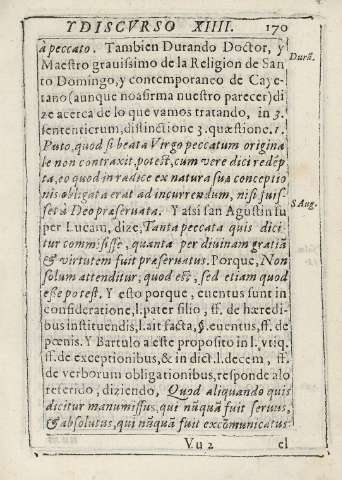 Y DISCVRSO XIIII. 170
à peccato. Tambien Durando Doctor, y
Maestro grauissimo de la Religion de San
to Domingo, y contemporaneo de Caye-
tano (aunque no afirma nuestro parecer) di
ze acerca de lo que vamos tratando, in 3.
sententicrum, distinctione 3. quæstione. 1.
Puto, quod si beata Virgo peccatum origina
le non contraxit, potest, cum vere dici redẽp
ta, eo quod in radice ex natura sua conceptio
nis obligata erat ad incurrendum, nisi fuis-
set à Deo præseruata. Y assi san Agustin su
per Lucam, dize, Tanta peccata quis dici
tur commisisse, quanta per diuinam gratiã
& virtutem fuit præseruatus. Porque, Non
solum attenditur, quod est, sed etiam quod
esse potest. Y esto porque, euentus sunt in
consideratione, l. pater filio, ff. de hæredi
bus instituendis, l. ait facta, §. euentus, ff. de
pœnis. Y Bartulo a este proposito in l. vtiq.
ff. de exceptionibus, & in dict. l. decem, ff.
de verborum obligationibus, responde a lo
referido, diziendo, Quod aliquando quis
dicitur manumissus, qui nũquã fuit seruus,
& absolutus, qui nũquã fuit excõmunicatus
Vu 2 el
Durã.
S Aug.